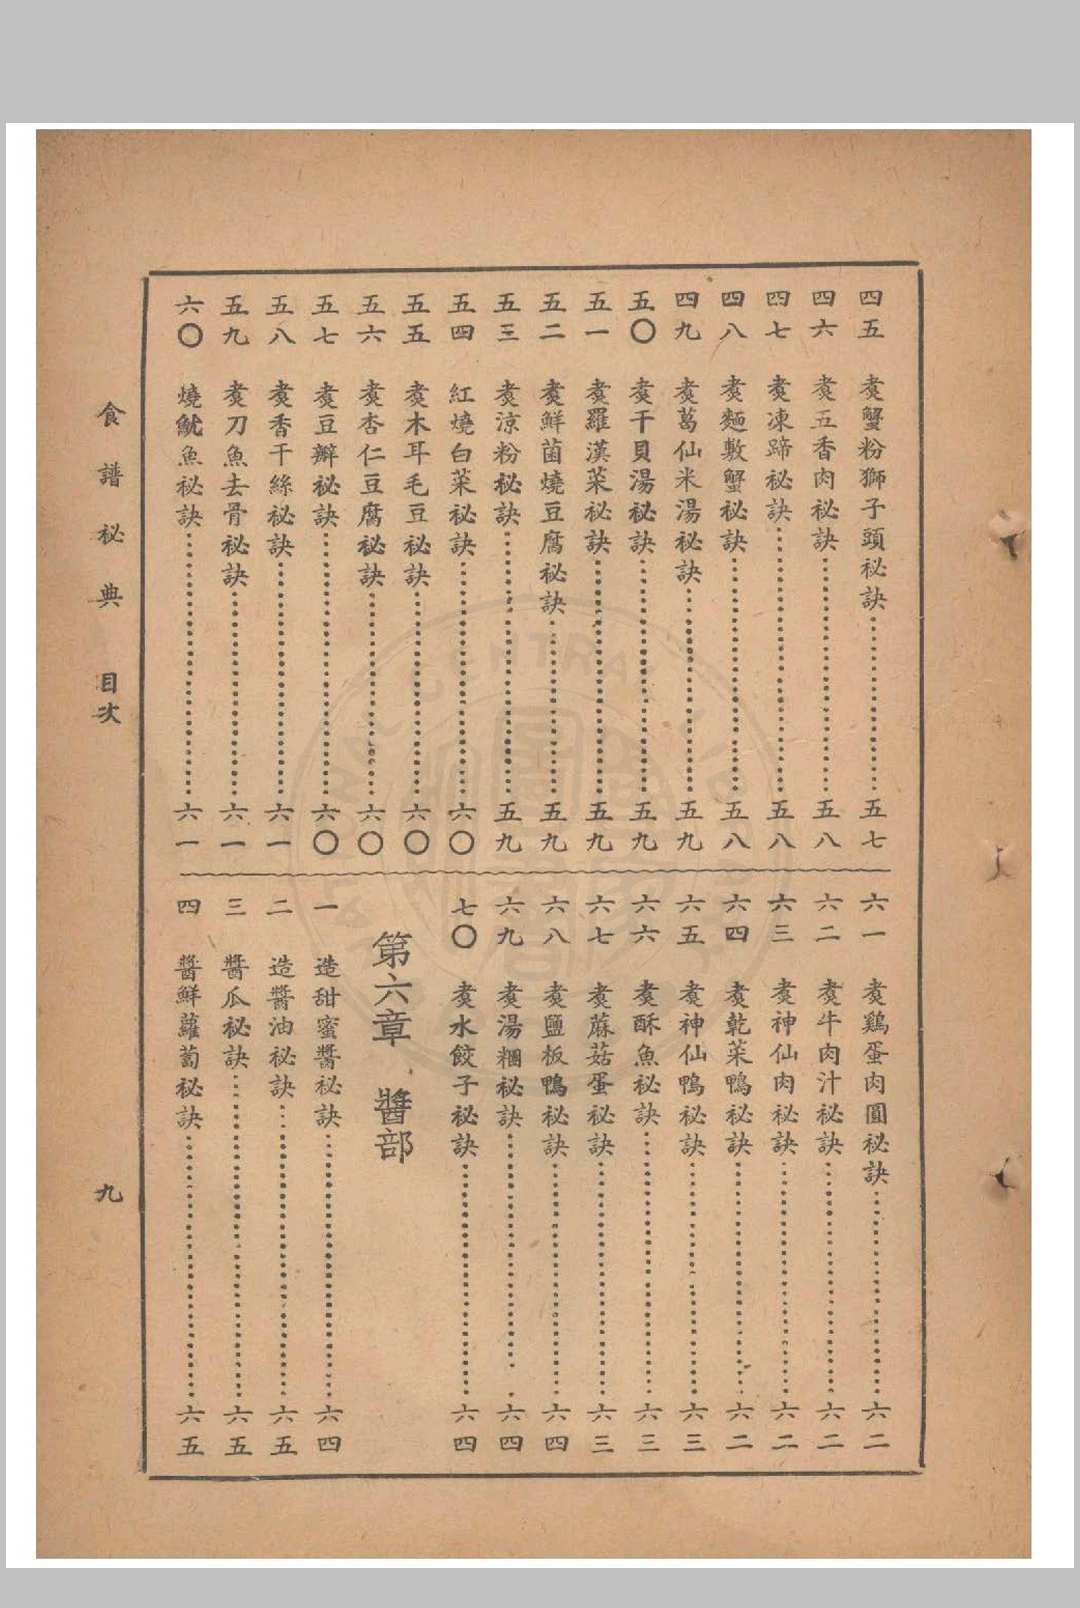 四五 煑蟹粉獅子頭秘訣 五七
四六 煑五香肉秘訣 五八
四七 煑凍蹄秘訣 五八
四八 煑麵敷蟹秘訣 五八
四九 煑葛仙米湯秘訣 五九
五〇 煑干貝湯秘訣 五九
五一 煑羅漢菜秘訣 五九
五二 煑鮮菌燒豆腐秘訣 五九
五三 煑涼粉秘訣 五九
五四 紅燒白菜秘訣 六〇
五五 煑木耳毛豆秘訣 六〇
五六 煑杏仁豆腐秘訣 六〇
五七 煑豆瓣秘訣 六〇
五八 煑香干絲秘訣 六一
五九 煑刀魚去骨秘訣 六一
六〇 燒魷魚秘訣 六一
六一 煑鷄蛋肉圓秘訣 六二
六二 煑牛肉汁秘訣 六二
六三 煑神仙肉秘訣 六二
六四 煑乾菜鴨秘訣 六二
六五 煑神仙鴨秘訣 六三
六六 煑酥魚秘訣 六三
六七 煑蔴菇蛋秘訣 六三
六八 煑鹽板鴨秘訣 六四
六九 煑湯糰秘訣 六四
七〇 煑水餃子秘訣 六四
第六章 醬部
一 造甜蜜醬秘訣 六四
二 造醬油秘訣 六五
三 醬瓜秘訣 六五
四 醬鮮蘿蔔秘訣 六五
食譜秘典 目次 九